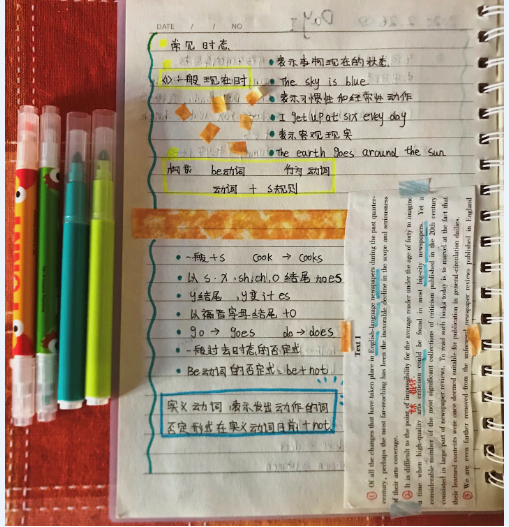 DATE / / NO
Day 1
常见时态
表示事物现在的状态
(1) 一般现在时
The sky is blue
表示习惯性和经常性动作
I get up at six every day
表示客观现实
The earth goes around the sun
构成 be动词 行为动词
动词 + s规则
一般+s cook → cooks
以 s.x.sh.ch.o 结尾 +oes
y结尾 ,y变i+es
go → goes do → does
一般过去时态的否定式
Be动词的否定式、be+not
实义动词 表示发出动作的词
否定形式在实义动词月前 + not
Text 1
① Of all the changes that have taken place in English-language newspapers during the past quarter-
century, perhaps the most far-reaching has been the inexorable decline in the scope and seriousness
of their arts coverage.
② It is difficult to the point of impossibility for the average reader under the age of forty to imagine
a time when high-quality arts criticism could be found in most big-city newspapers. Yet a
considerable number of the most significant collections of criticism published in the 20th century
consisted in large part of newspaper reviews. To read such books today is to marvel at the fact that
their learned contents were once deemed suitable for publication in general-circulation dailies.
③ We are even farther removed from the newspaper reviews published in England